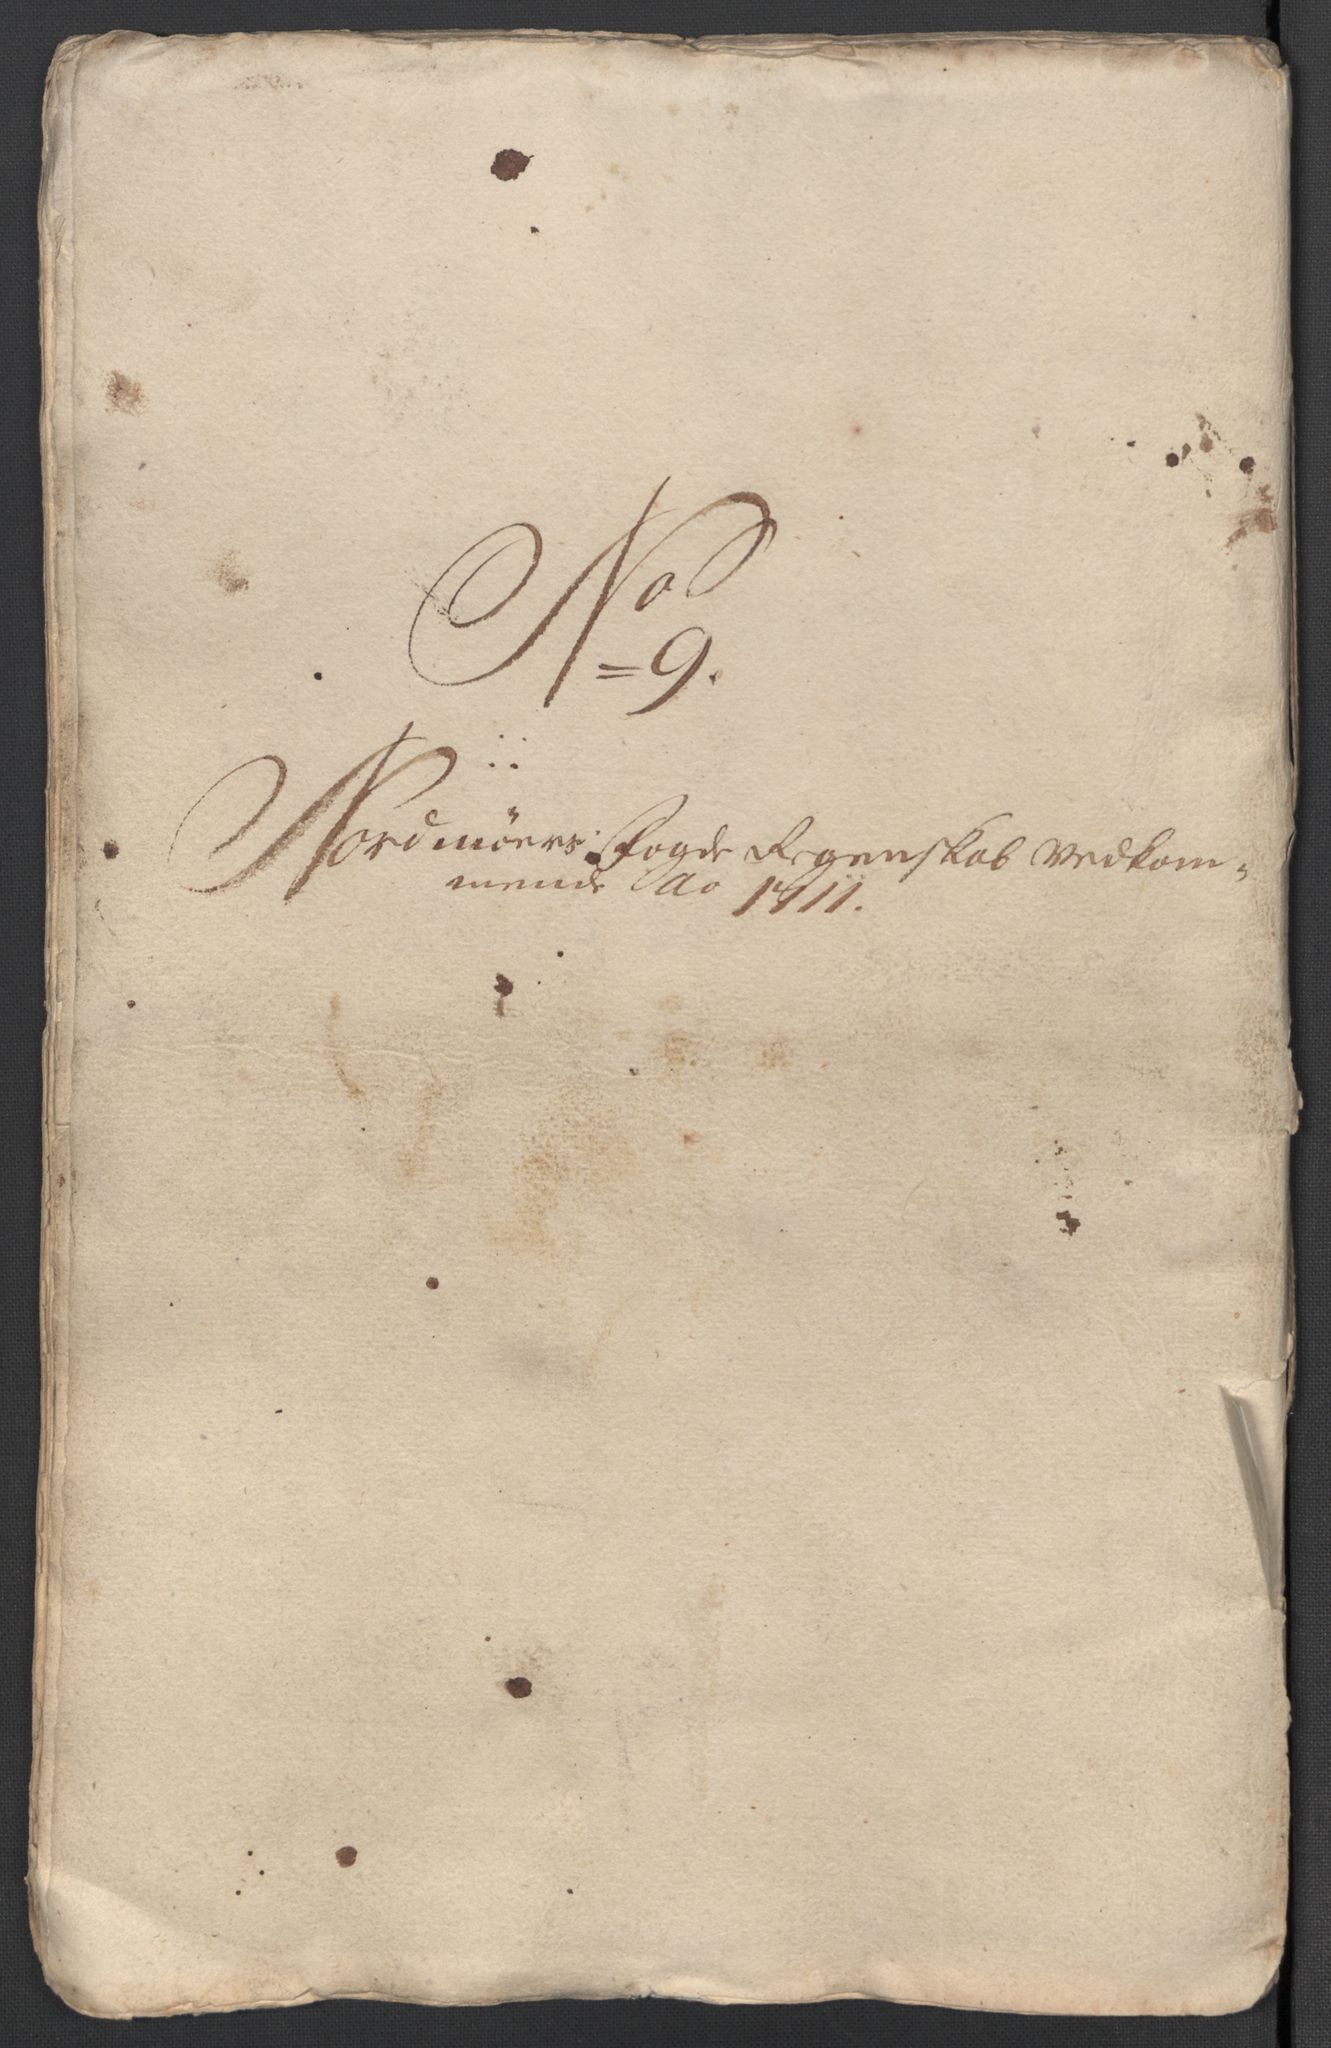 No
= 9.
Nordmöers Fogde Regenskab Vedkom=
mende Ao 1711.